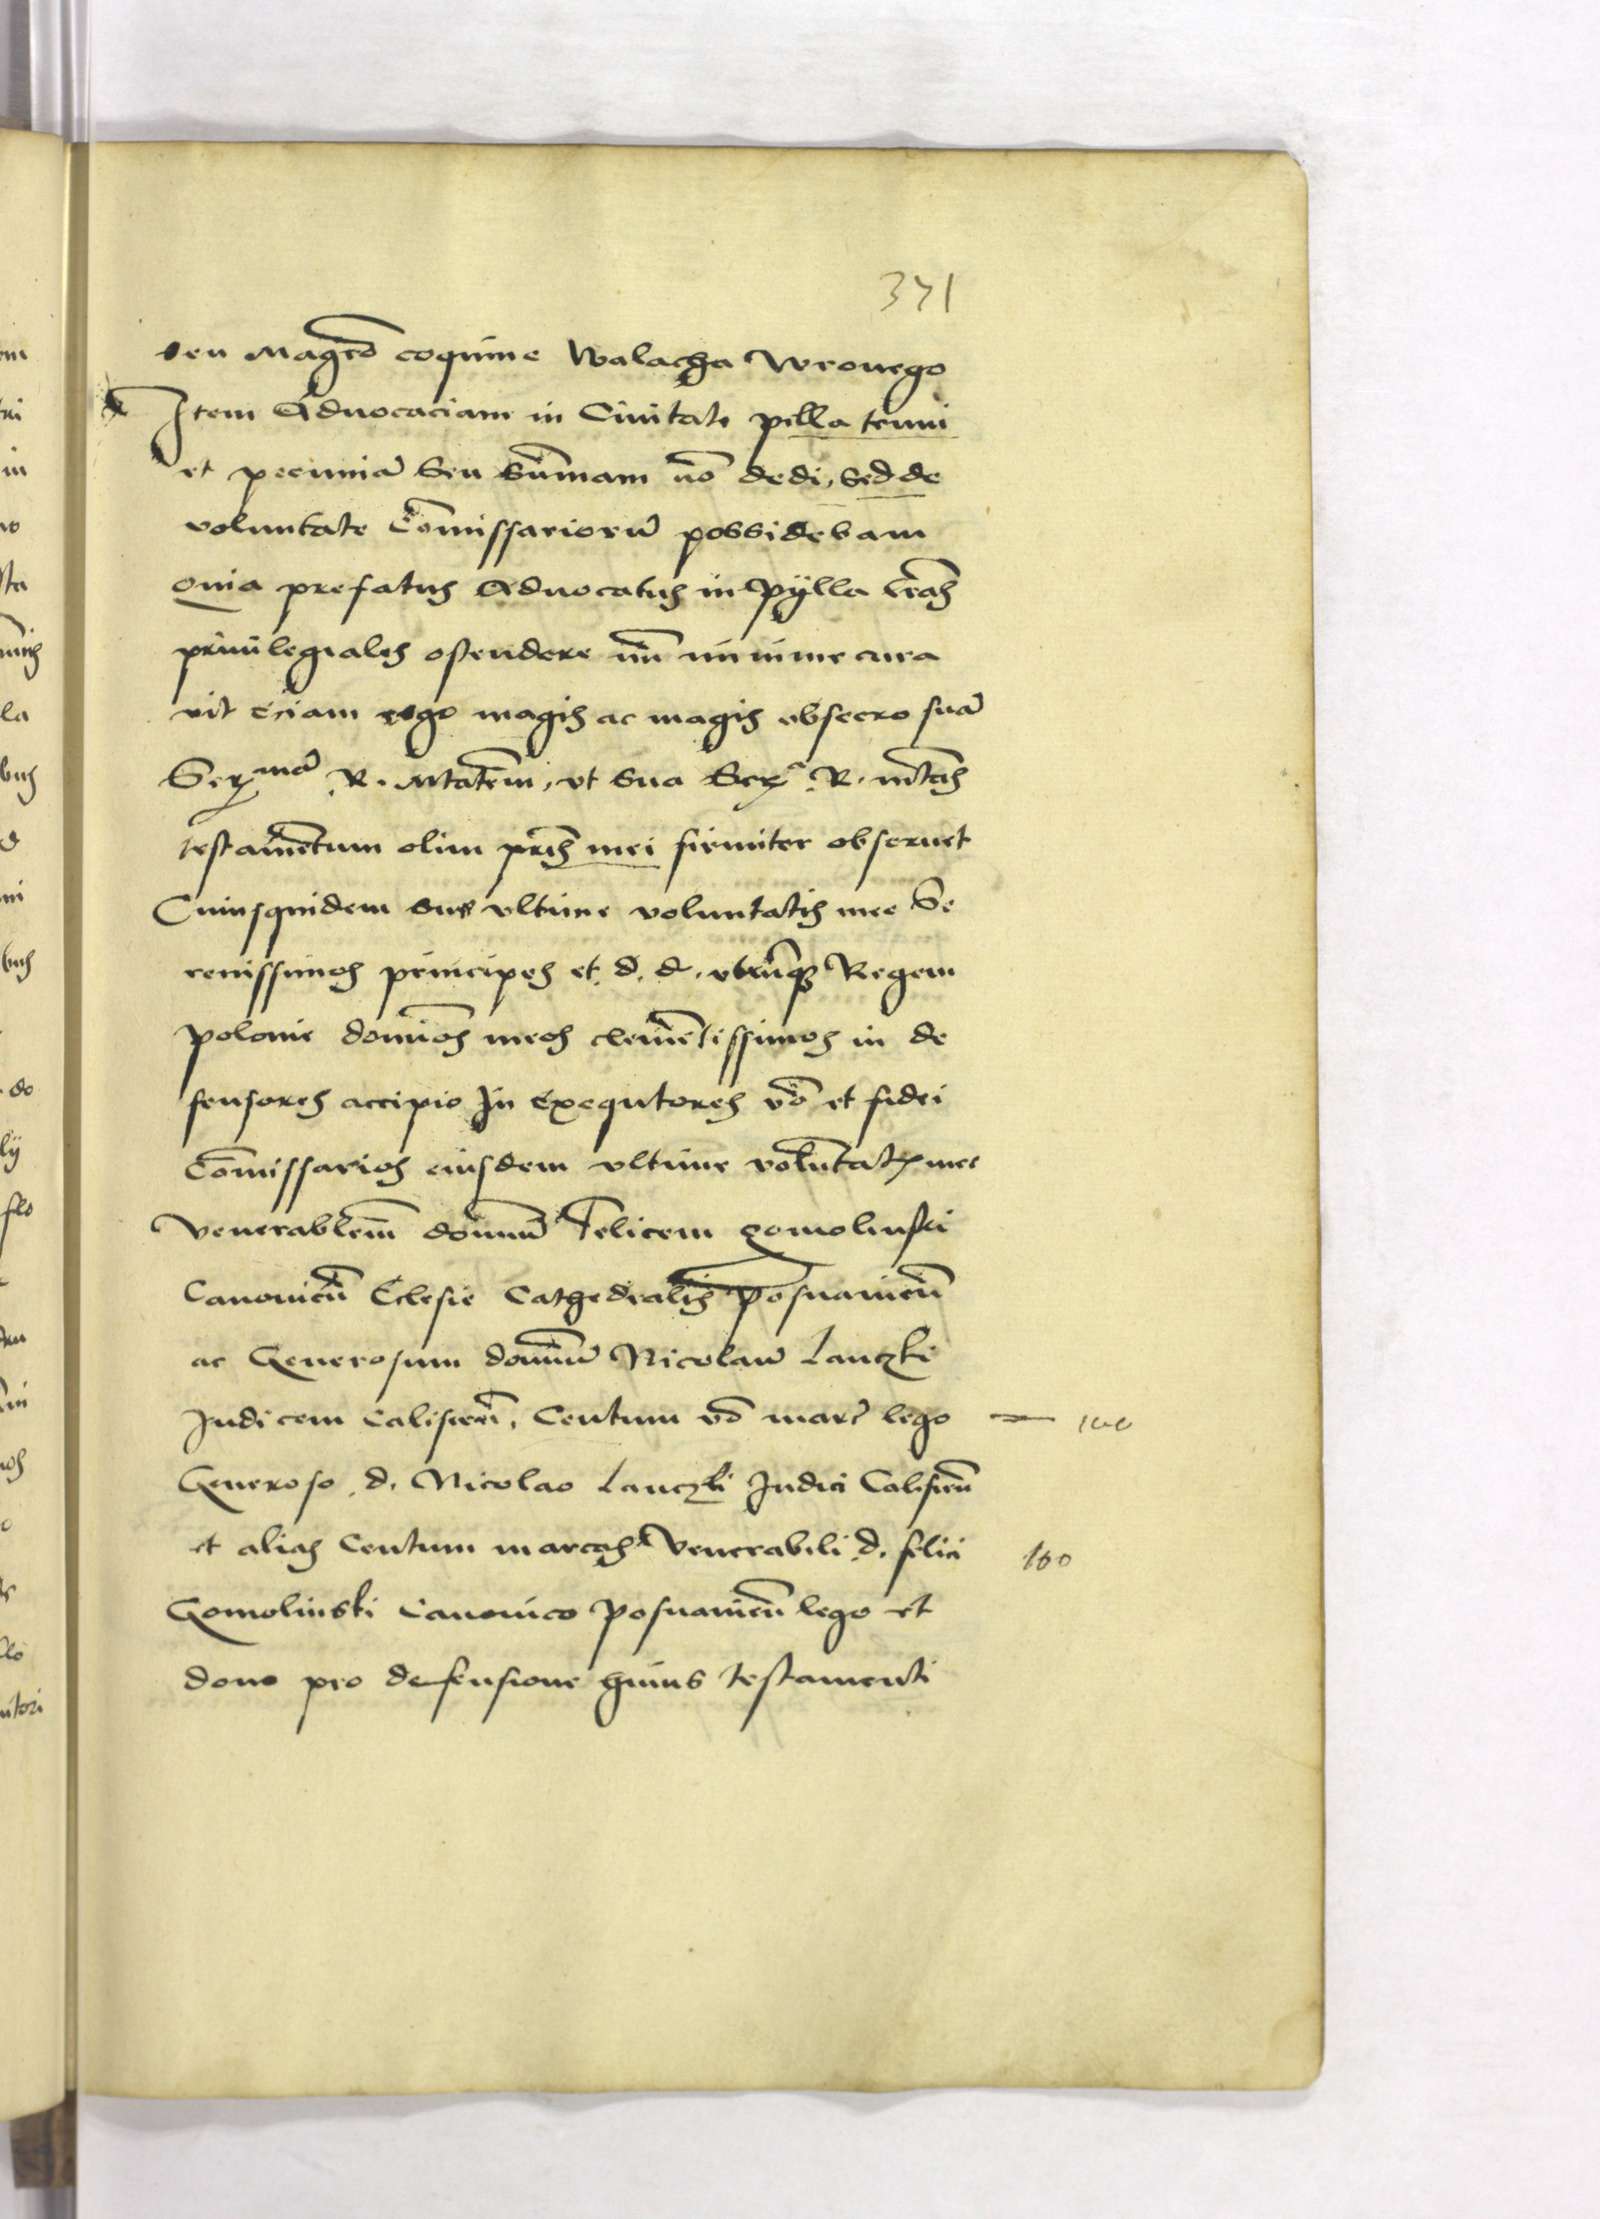 371
seu Mag̃ro coquine Walacha Wronego
Item Aduocaciam in Ciuitate pella tenui
et pecuniã Seu Sũmam nõ dedi, Sed de
voluntate Cõmissariorũ possidebam
quia prefatus Aduocatus in Pÿlla lr̃as
priuilegiales ostendere mĩ minime cura
uit Eciam ergo magis ac magis obsecro suã
Serᵐᵃ̃ R. Mtatẽm, vt Sua Serᵃ R. mt̃as
testamẽtum olim pr̃is mei firmiter obseruet
Cuiusquidem sue vltime voluntatis mee Se
renissimos principes et d. d. vtrũq Regem
polonie domĩos meos clemẽtissimos in de
fensores accipio In Exequtores võ et fidei
Cõmissarios eiusdem vltime volũtatis mee
Venerablem̃ domnũ Felicem gomolinski
Canonicũ Eclesie Cathedralis Posnanieñ
ac Generosum domnũ Nicolaũ Lanczki
Judicem Calisieñ, Centum võ marc̃ lego 100
Generoso d. Nicolao Lanczki Judici Calisieñ
et alias Centum marcas Venerabili d. felici 100
Gomolinski Canonico Posnanieñ lego et
dono pro defensione huius testamenti